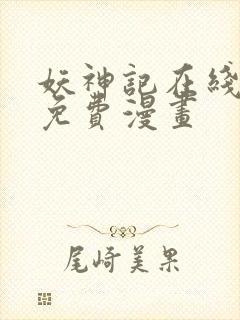 妖神記在綫
免費漫畫
尾崎美果